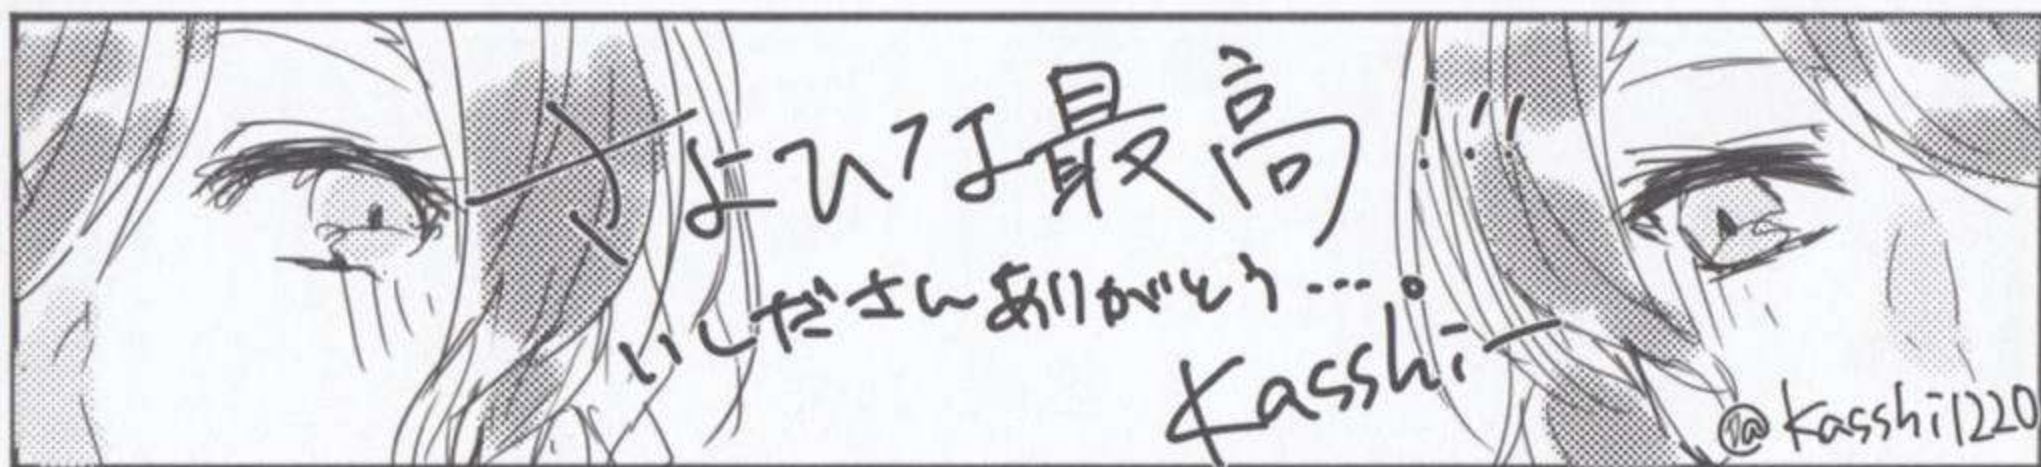 さよひな最高!!!
いしださんありがとう…。
Kasshiー
@kasshi1220